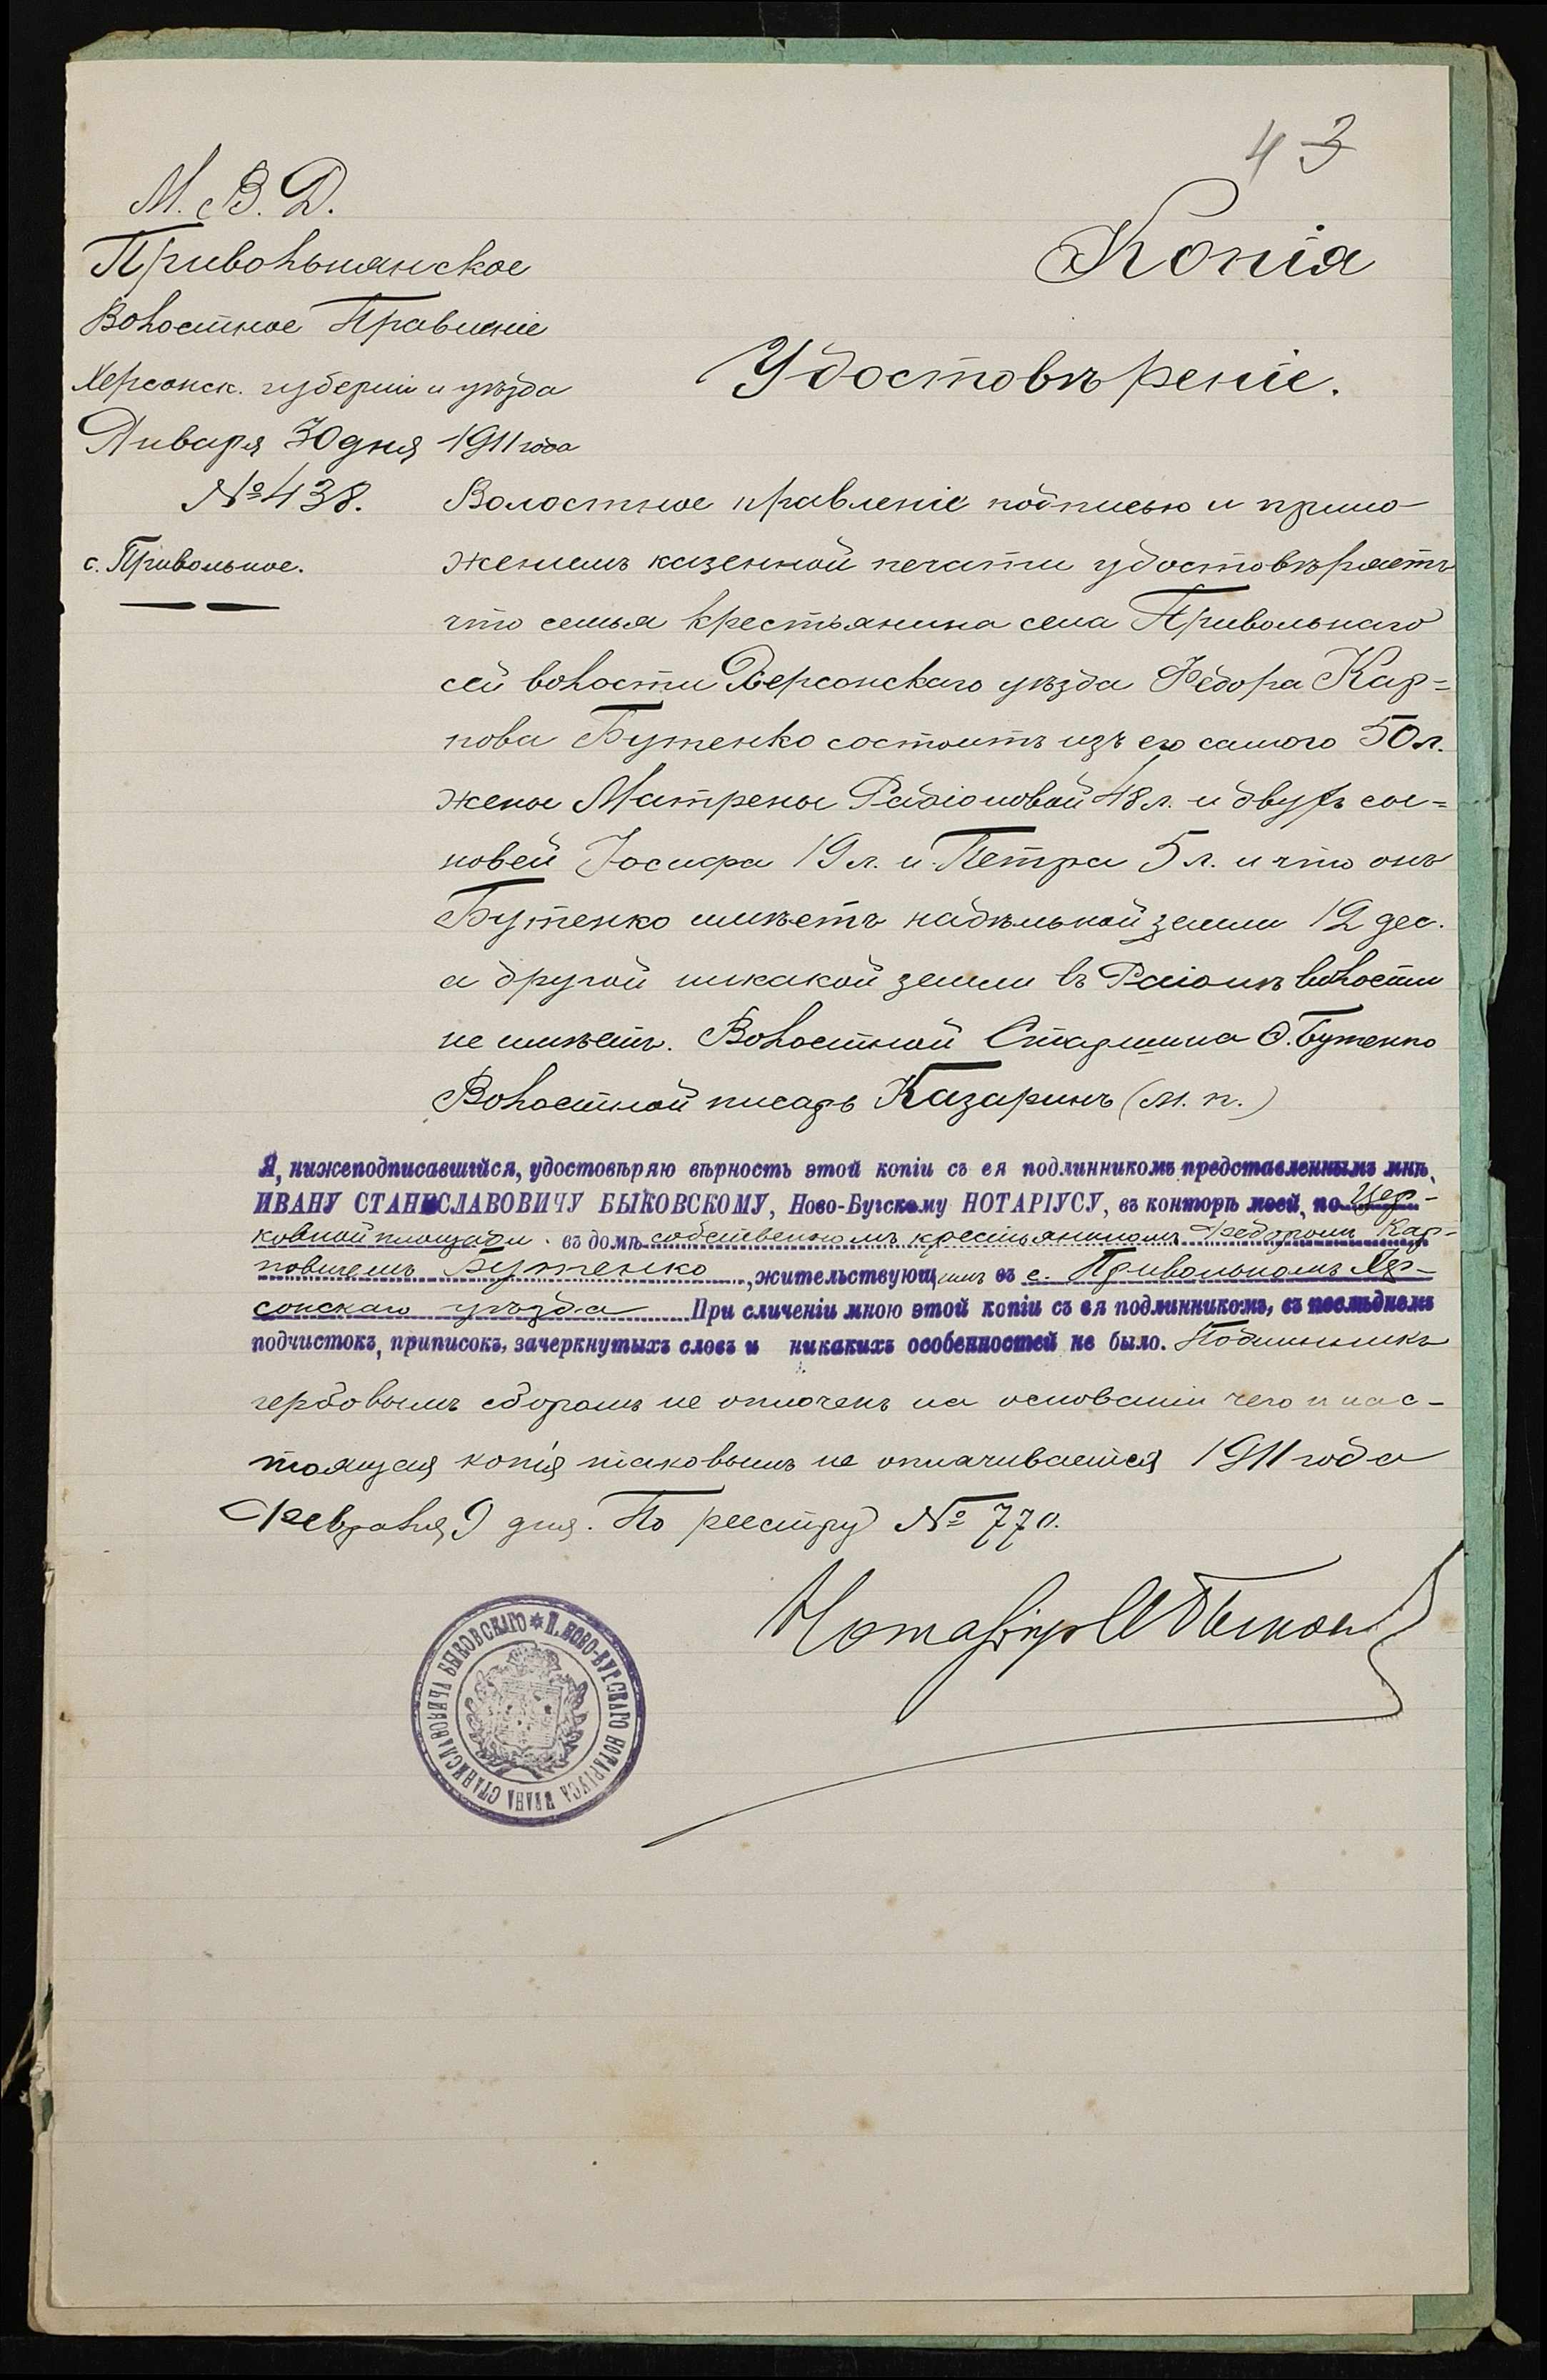 43
М. В. Д.
Привольнянское
Волостное Правленіе
Херсонск. губерніи и уѣзда
Января 30 дня 1911 года
№ 438.
с. Привольное.
Копія
Удостовѣреніе.
Волостное правленіе подписью и прило-
женіемъ казенной печати удостовѣряетъ
что семья крестьянина села Привольнаго
сей волости Херсонскаго уѣзда Ѳедора Кар=
пова Бутенко состоитъ изъ его самого 50 л.
жены Матрены Радіоновой 48 л. и двухъ сы=
новей Іосифа 19 л. и Петра 5 л. и что онъ
Бутенко имѣетъ надѣльной земли 12 дес.
а другой никакой земли въ Раіонѣ волости
не имѣетъ. Волостной Старшина Ѳ. Бутенко
Волостной писарь Казаринъ (М. п.)
Я, нижеподписавшійся, удостовѣряю вѣрность этой копіи съ ея подлинникомъ представленнымъ мнѣ,
ИВАНУ СТАНИСЛАВОВИЧУ БЫКОВСКОМУ, Ново-Бугскому НОТАРІУСУ, въ конторѣ моей, по Цер-
ковной площади въ домѣ собственномъ крестьяниномъ Ѳедоромъ Кар-
повичемъ Бутенко, жительствующимъ въ с. Привольномъ Хер-
сонскаго уѣзда При сличеніи мною этой копіи съ ея подлинникомъ, въ послѣднемъ
подчистокъ, приписокъ, зачеркнутыхъ словъ и никакихъ особенностей не было. Подлинникъ
гербовымъ сборомъ не оплоченъ на основаніи чего и нас-
тоящая копія таковымъ не оплачивается 1911 года
Февраля 9 дня. По реестру № 770.
Нотаріусъ И Быков
* П. НОВО-БУГСКАГО НОТАРІУСА ИВАНА СТАНИСЛАВОВИЧА БЫКОВСКАГО